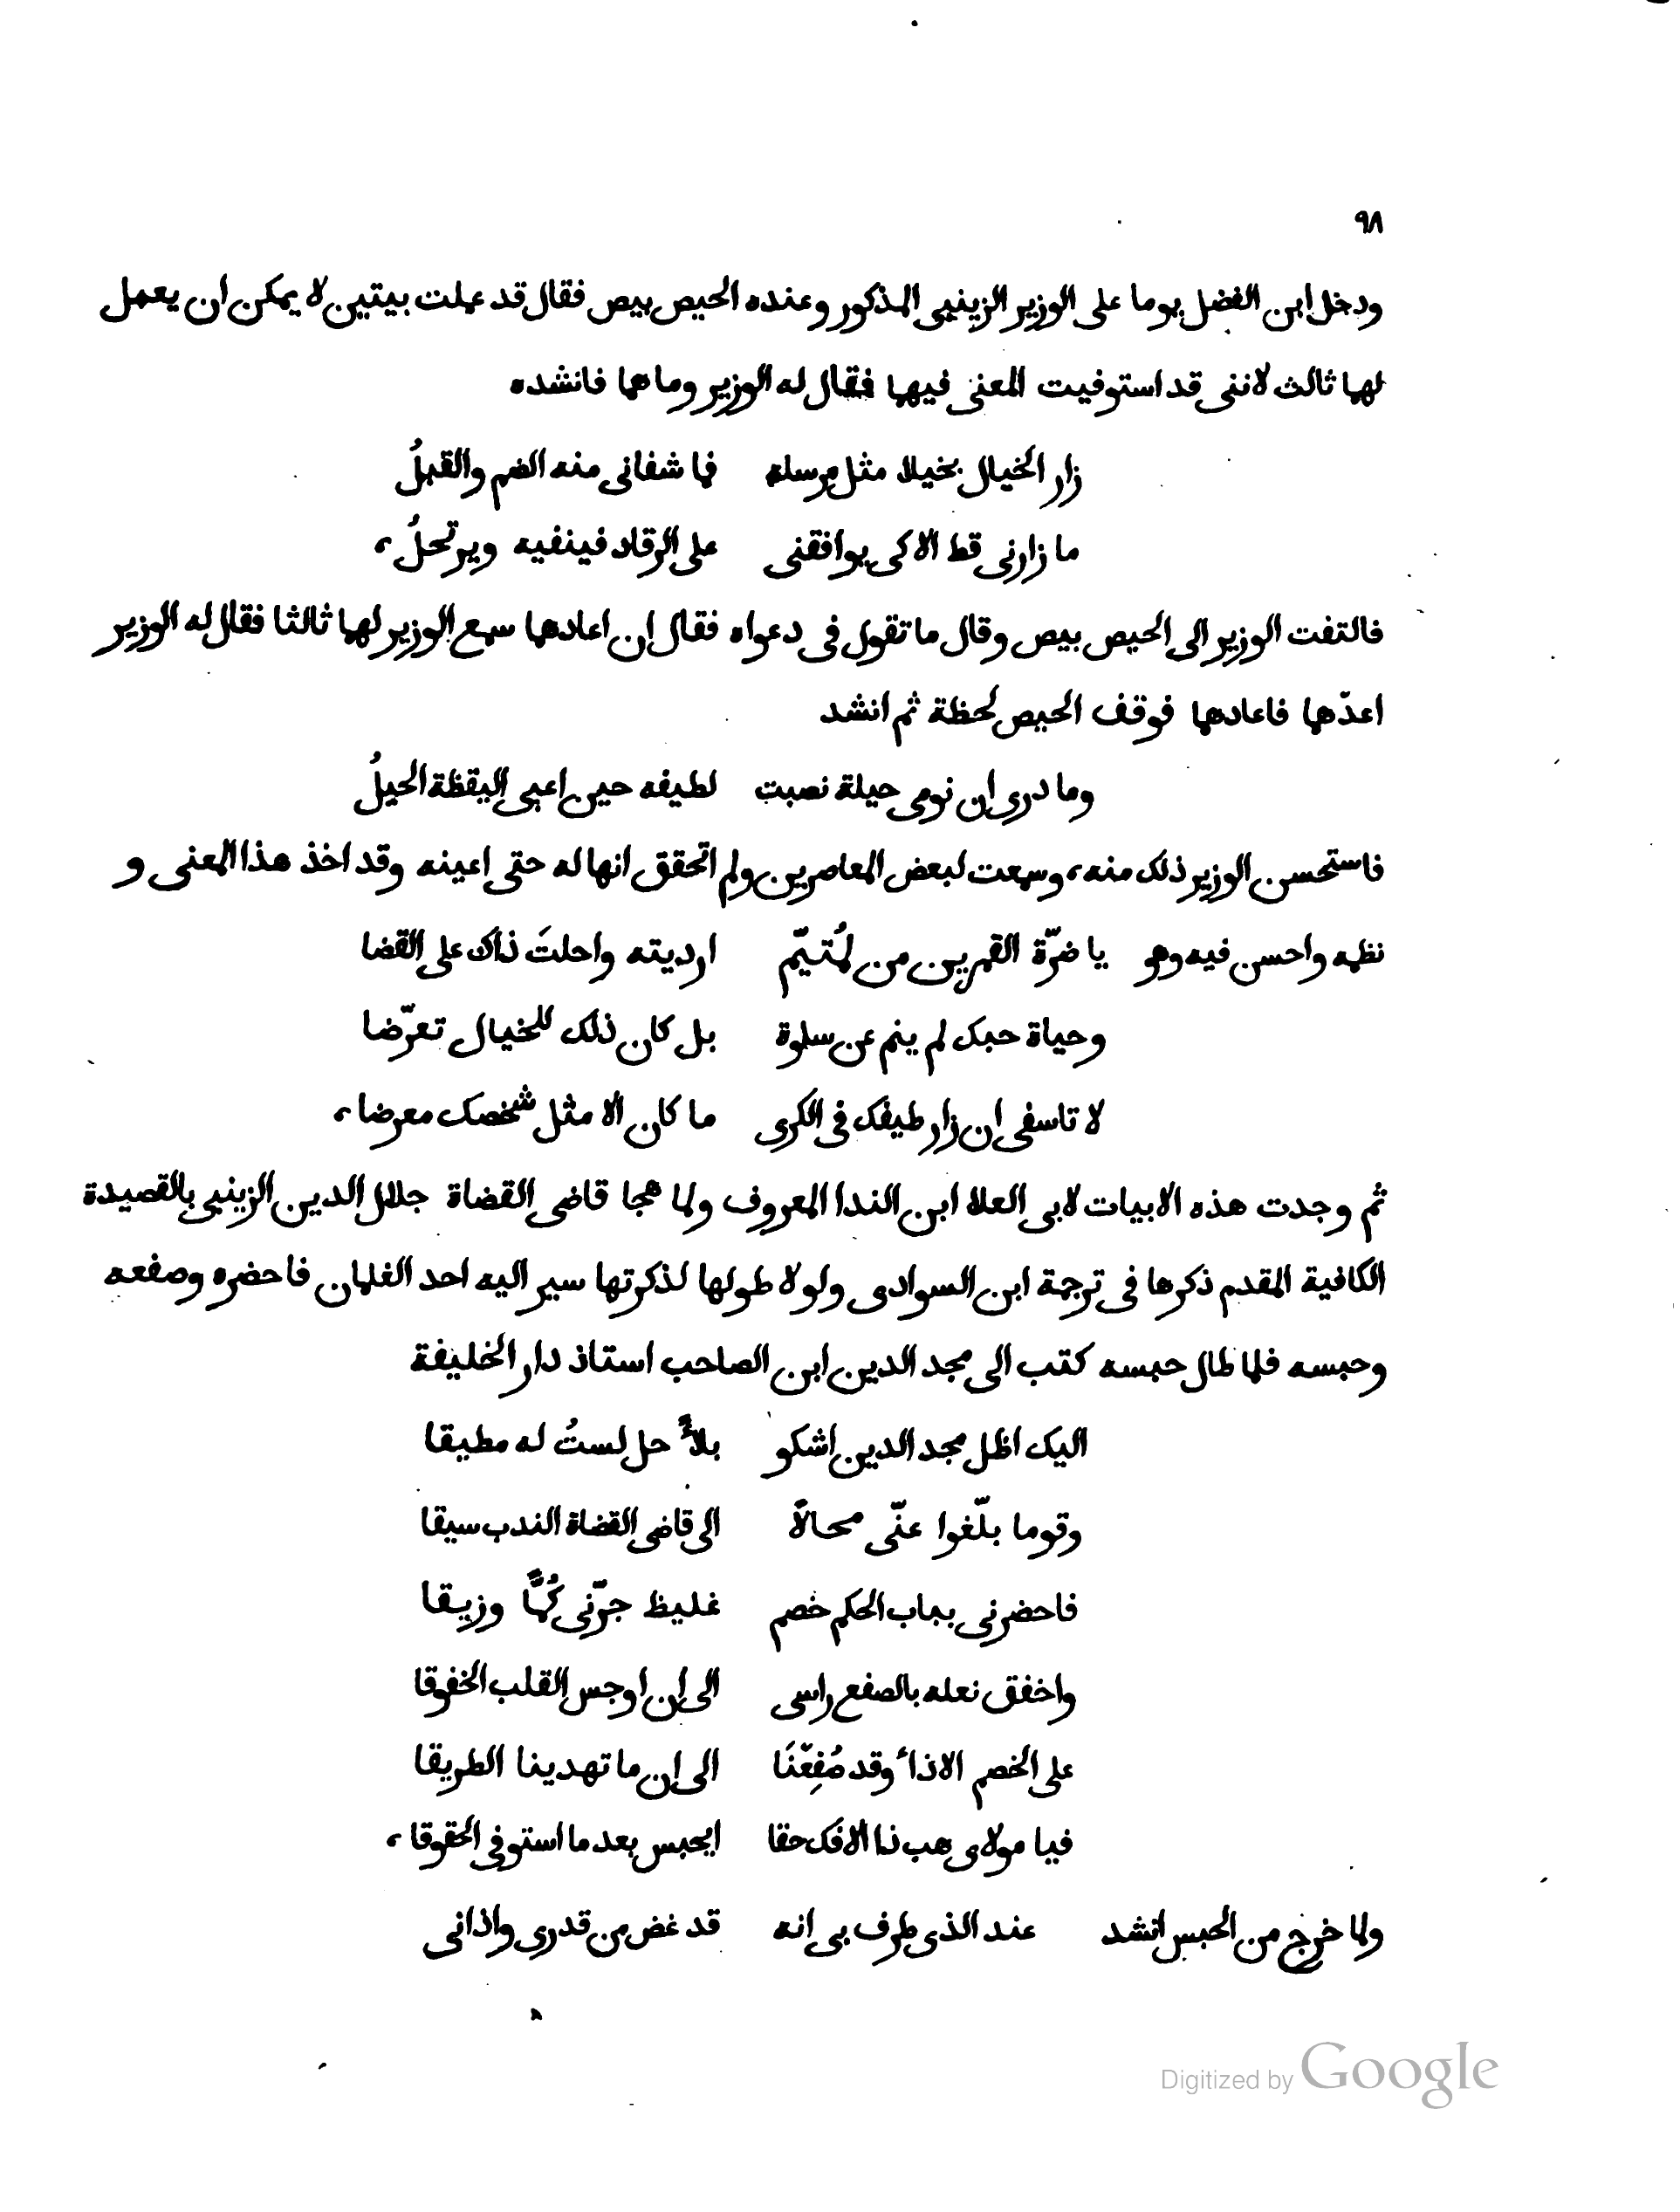 ٩٨
ودخل ابن الفضل يوما على الوزير الزينبى المذكور وعنده الحيص بيص فقال قد عملت بيتين لا يمكن ان يعمل
لهما ثالث لاننى قد استوفيت المعنى فيهما فقال له الوزير وما هما فانشده
زار الخيال بخيلا مثل مرسله فما شفانى منه الضم والقبلُ
ما زارنى قط الا كى يوافقنى على الرقاد فينفيه ويرتحلُ،
فالتفت الوزير الى الحيص بيص وقال ما تقول فى دعواه فقال ان اعادها سمع الوزير لهما ثالثا فقال له الوزير
اعدّهما فاعادهما فوقف الحيص لحظة ثم انشد
وما درى ان نومى حيلة نصبت لطيفه حين اعيى اليقظة الحيلُ
فاستحسن الوزير ذلك منه، وسمعت لبعض المعاصرين ولم اتحقق انها له حتى اعينه وقد اخذ هذا المعنى و
نظمه واحسن فيه وهو يا ضرّة القمرين من لمُتيّم ارديته واحلتَ ذاك على القضا
وحياة حبك لم ينم عن سلوة بل كان ذلك للخيال تعرّضا
لا تاسفى ان زار طيفك فى الكرى ما كان الا مثل شخصك معرضا،
ثم وجدت هذه الابيات لابى العلا ابن الندا المعروف ولما هجا قاضى القضاة جلال الدين الزينبى بالقصيدة
الكافية المقدم ذكرها فى ترجمة ابن السوادى ولولا طولها لذكرتها سير اليه احد الغلمان فاحضره وصفعه
وحبسه فلما طال حبسه كتب الى مجد الدين ابن الصاحب استاذ دار الخليفة
اليك اظل مجد الدين اشكو بلاءً حل لستُ له مطيقا
وقوما بلّغوا عنّى محالاً الى قاضى القضاة الندب سيقا
فاحضرنى بباب الحكم خصم غليظ جرّنى كُمًّا وزيقا
واخفق نعله بالصفع راسى الى ان اوجس القلب الخفوقا
على الخصم الاداء وقد صُفِعْنَا الى ان ما تهدينا الطريقا
فيا مولاى هب ذا الافك حقا ايحبس بعد ما استوفى الحقوقا،
ولما خرج من الحبس انشد عند الذى طرف بى انه قد غض من قدرى واذانى
Digitized by Google